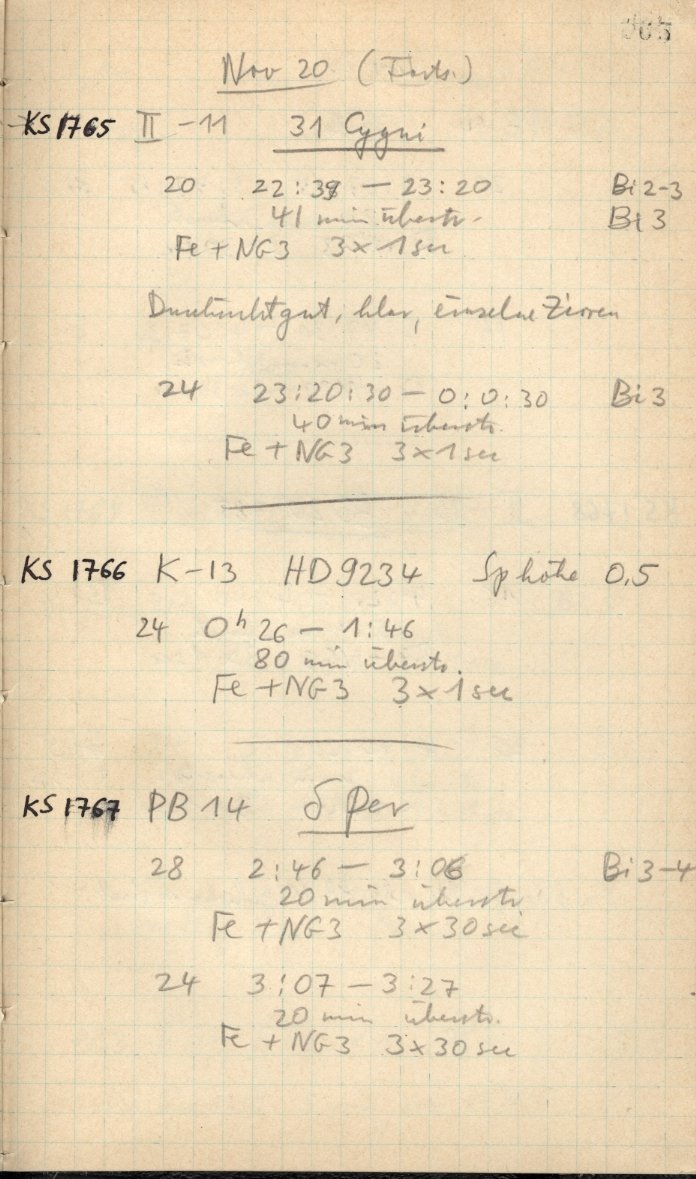 Nov 20 (Forts.)
KS 1765 II -11 31 Cygni
20 22:39 — 23:20 Bi 2-3
41 min überstr. Bi 3
Fe + NG3 3x1 sec
gut, klar, einzelne Zirren
24 23:20:30 — 0:0:30 Bi 3
40 min überstr.
Fe + NG3 3x1 sec
KS 1766 K-13 HD 9234 Sp höhe 0,5
24 0h 26 — 1:46
80 min überstr.
Fe + NG3 3x1 sec
KS 1767 PB 14 δ Per
28 2:46 — 3:06 Bi 3-4
20 min überstr
Fe + NG3 3x30 sec
24 3:07 — 3:27
20 min überstr.
Fe + NG3 3x30 sec